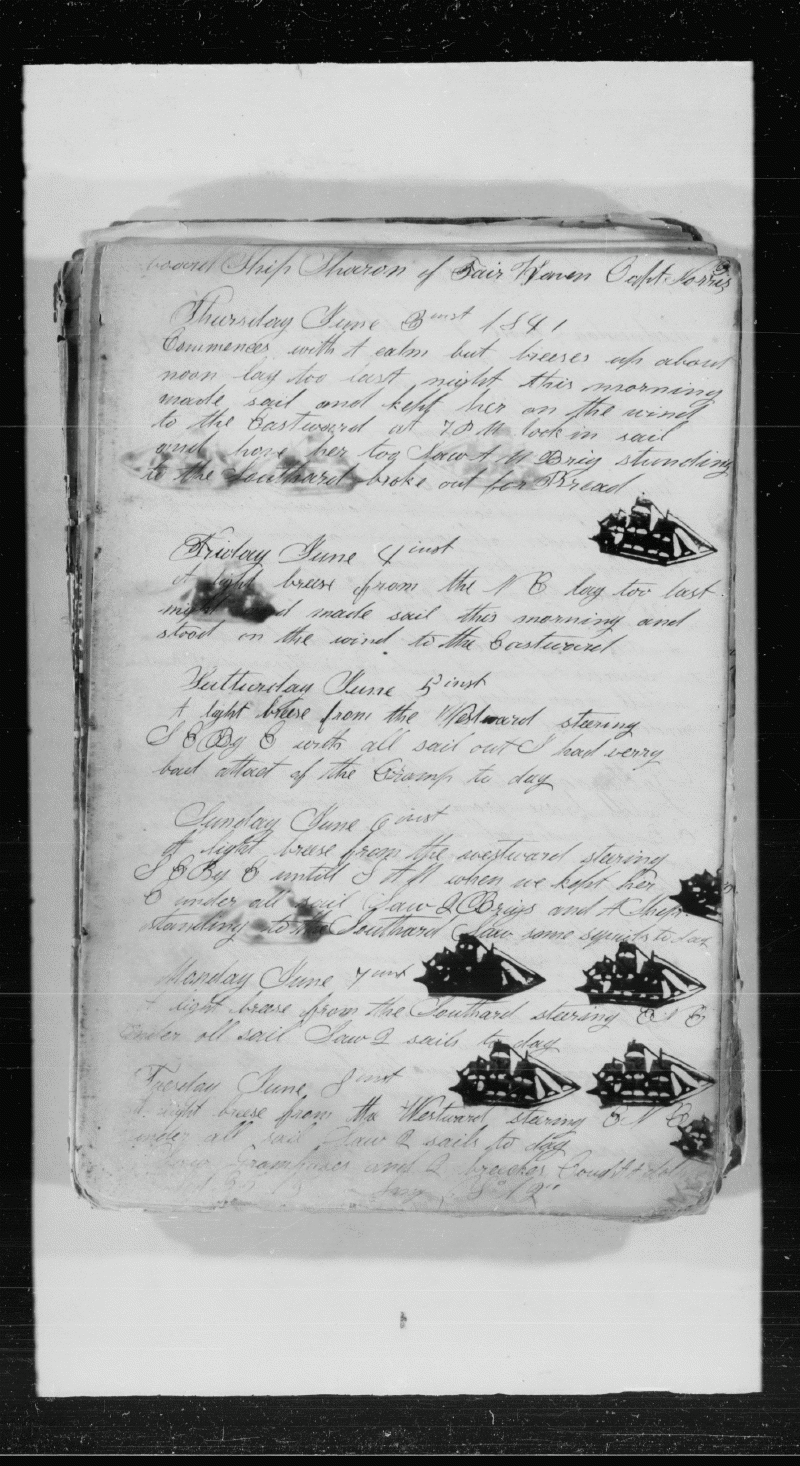 board Ship Sharon of Fair Haven Capt. Norris
Thursday June 3 inst 1841
Commences with A calm but breeses up about
noon lay too last night this morning
made sail and kept her on the wind
to the Eastward at 7 P M took in sail
and hove her too Saw A M Brig standing
to the Southard broke out for Bread
Friday June 4 inst
A light breese from the N E lay too last
made sail this morning and
stood on the wind to the Eastward
Satturday June 5 inst
A light breese from the Westward stearing
S E By E with all sail out I had verry
bad attact of the Cramp to day
Sunday June 6 inst
A light breese from the westward stearing
S E By E untill when we kept her
E under all sail Saw 2 Brigs and A Ship
standing to the Southard Saw some squids to day
Monday June 7 inst
A light breese from the Southard stearing
under all sail Saw 2 sails to day
Tuesday June 8 inst
A light breese from the Westward stearing
under all sail Saw 2 sails to day
Saw Grampuses and 2 breaches Caught A